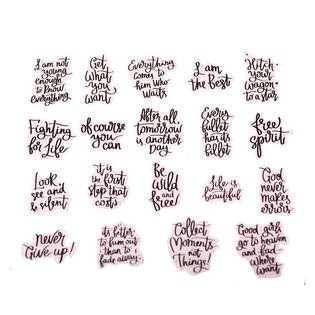 I am not
young
enough
to know
everything
Get
What
you
want
Everything
comes to
him Who
Waits
I am
the Best
Hitch
your
Wagon
to a star
Fighting
for Life
of course
you
can
After all,
tomorrow
is another
Day
Every
bullet
has its
billet
free
spirit
Look,
see and
be silent
it is
the first
step that
costs
Be
Wild
and
free!
Life is
beautiful
God
never
makes
errors
Never
Give up!
its better
to burn out
than to
fade away
Collect
Moments
not
Things!
Good girls
go to heaven
and bad-
where
want